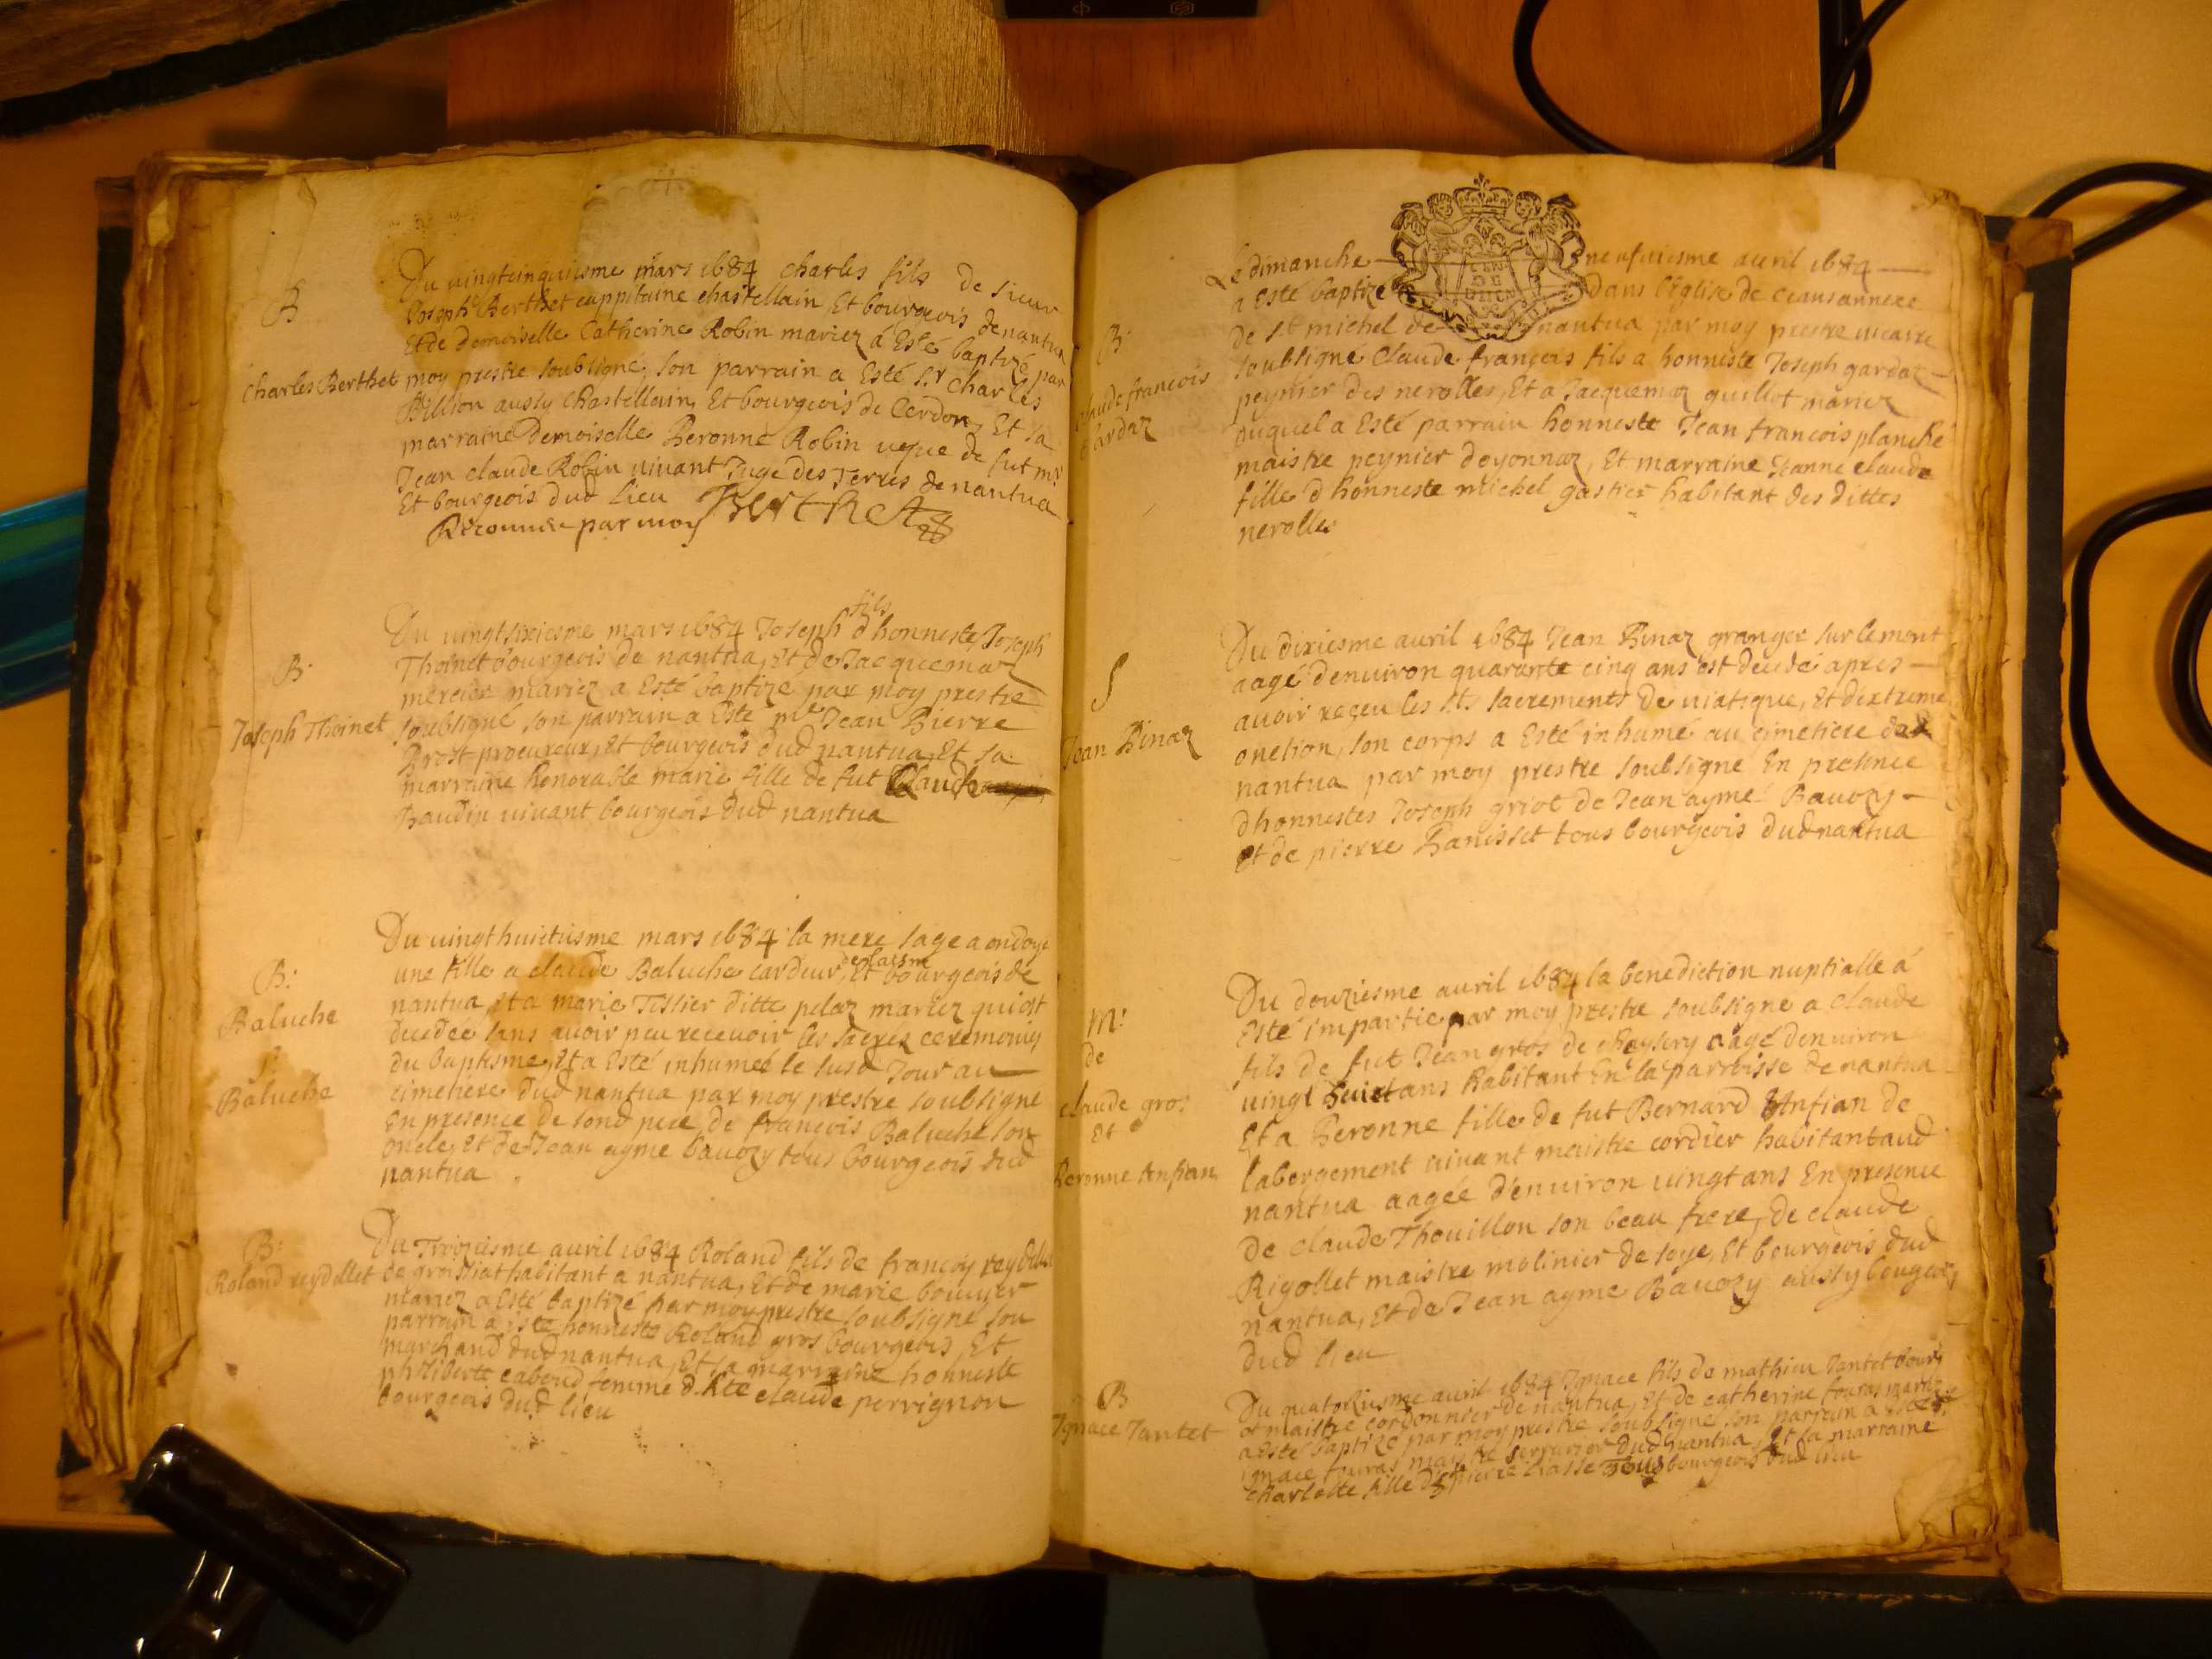 B
Charles Berthet
Du uingtcinquiesme mars 1684 charles fils de sieur
Joseph Berthet cappitaine chastellain Et bourgeois de nantua
Et de Demoiselle Catherine Robin mariez a Esté baptizé par
moy prestre soubsigné, son parrain a Esté sr Charles
Billion aussy Chastellain, Et bourgeois de Cerdon, Et sa
marraine Demoiselle Peronne Robin uefue de fut mr
Jean claude Robin uiuant Juge des Terres de nantua
Et bourgeois dud Lieu
par moy Berthet
B.
Joseph Thoinet
fils
Du uingt sixiesme mars 1684 Joseph d'honneste Joseph
Thoinet bourgeois de nantua, Et de Jacquemaz
mercier mariez a Esté baptizé par moy prestre
soubsigné son parrain a Esté me Jean Pierre
Prost procureur, Et bourgeois dud nantua, Et sa
marraine honorable marie fille de fut Claude
Baudin uiuant bourgeois dud nantua
B:
Baluche
S.
Baluche
Du uingthuictiesme mars 1684 la mere sage a ondoyé
de laisne
une fille a claude Baluche cardeur, Et bourgeois de
nantua, Et a marie Tissier ditte pelaz mariez qui est
decedee sans auoir peu receuoir les sacrez ceremonies
du baptisme, Et a Esté inhumée le susd Jour au
cimetiere dud nantua par moy prestre soubsigné
En presence de sond pere, de françois Baluche son
oncle, Et de Jean ayme bauozy tous bourgeois dud
nantua
B:
Roland reydellet
Du Troiziesme auril 1684 Roland fils de françoy reydellet
de groissiat habitant a nantua, Et de marie bouuyer
mariez a Esté baptizé par moy prestre soubsigné son
parrain a Esté honneste Roland gros bourgeois, Et
marchand dud nantua, Et sa marraine honneste
philiberte caboud femme d'hte claude perrignon
bourgeois dud lieu
B.
claude francois
Gardaz
Le dimanche neufuiesme auril 1684
a Esté baptizé Dans l'Eglise de
de st michel de nantua par moy prestre uicaire
soubsigné Claude françois fils a honneste Joseph gardaz
peynier des nerolles, Et a Jacquemaz guillot mariez
auquel a Esté parrain honneste Jean francois planche
maistre peynier d'oyonnaz, Et marraine Jeanne claude
fille d'honneste michel gastier habitant des dittes
nerolles
S
Jean Pinaz
Du dixiesme auril 1684 Jean Pinaz granger sur le mont
aagé denuiron quarante cinq ans est decedé apres
auoir reçeu les sts sacrements de uiatique, Et d'extreme
onction, son corps a Esté inhumé au cimetiere dud
nantua par moy prestre soubsigné En presence
d'honnestes Joseph griot de Jean aymé Bauozy
Et de pierre Panisset tous bourgeois dud nantua
M:
de
claude gros
Et
Peronne Anfian
Du douziesme auril 1684 la benediction nuptialle a
Esté impartie par moy prestre soubsigné a Claude
fils de fut Jean gros de chaysery aagé denuiron
uingt huict ans habitant En la parroisse de nantua
Et a Peronne fille de fut Bernard Anfian de
labergement uiuant maistre cordier habitant aud
nantua aagée d'enuiron uingt ans En presence
de claude Thouillon son beau frere, de claude
Rigollet maistre molinier de soye, Et bourgeois dud
nantua, Et de Jean ayme Bauozy aussy bourgeois
dud lieu
B
Ignace Jantet
Du quatorziesme auril 1684 Ignace fils de mathieu Jantet bourg
et maistre cordonnier de nantua, Et de catherine fouras mariez
a Esté baptizé par moy prestre soubsigné son parrain a Esté
ignace fouras maistre serrurier dud nantua, Et sa marraine
charlotte fille de pierre Tous bourgeois dud lieu